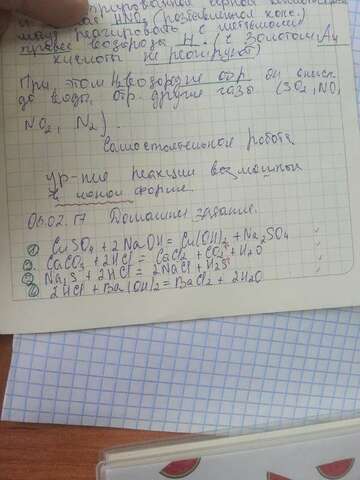 HNO3 (
реагировать с металлами
правее водорода H. (с золотом Au
кислоты не реагируют)
При этом
до воды, др. другие газы (SO2, NO,
NO2, N2).
Самостоятельная работа
ур-ние реакции возможных
в ионой форме.
06.02.17 Домашнее задание.
① CuSO4 + 2NaOH = Cu(OH)2 + Na2SO4
2. CaCO3 + 2HCl = CaCl2 + CO2 + H2O
Na2S + 2HCl = 2NaCl + H2S
2HCl + Ba(OH)2 = BaCl2 + 2H2O